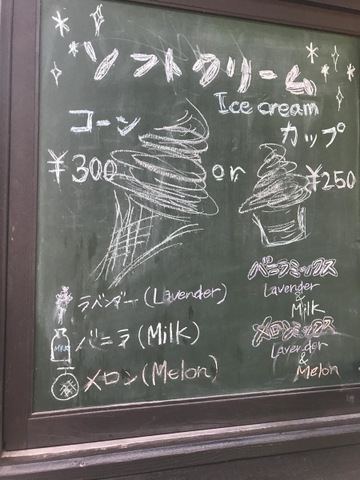 ソフトクリーム
Ice cream
コーン
カップ
¥300
or
¥250
ラベンダー(Lavender)
バニラ(Milk)
MILK
メロン(Melon)
バニラミックス
Lavender
&
Milk
メロンミックス
Lavender
&
Melon